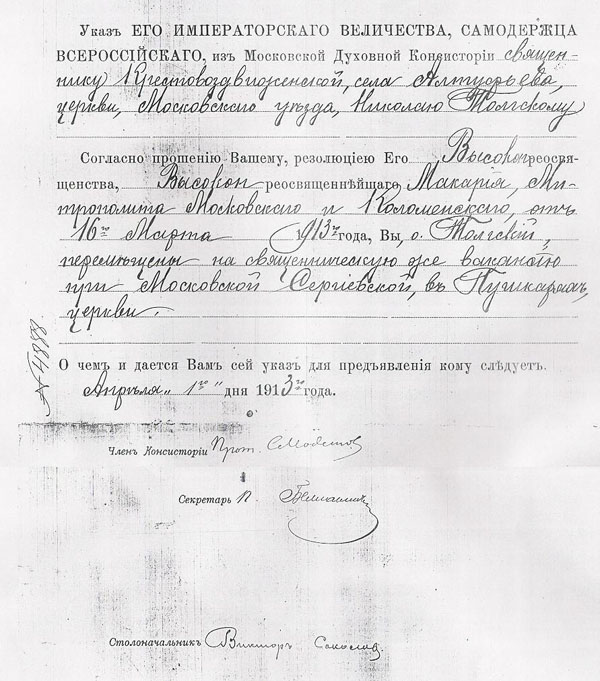 Указ ЕГО ИМПЕРАТОРСКАГО ВЕЛИЧЕСТВА, САМОДЕРЖЦА
ВСЕРОССІЙСКАГО, изъ Московской Духовной Консисторіи священ-
нику Крестовоздвиженской, села Алтуфьева,
церкви, Московскаго уезда, Николаю Толгскому
Согласно прошенію Вашему, резолюціею Его Высокопреосвя-
щенства, Высокопреосвященнѣйшаго Макарія, Ми-
трополита Московскаго и Коломенскаго, отъ
16го Марта 1913го года, Вы, о. Толгскій,
перемѣщены на священническую же вакансію
при Московской Сергіевской, въ Пушкаряхъ,
церкви.
О чемъ и дается Вамъ сей указъ для предъявленія кому слѣдуетъ.
Апрѣля „1го" дня 1913го года.
№ 4888
Членъ Консисторіи Прот.
Секретарь П.
Столоначальникъ Викторъ Соколов